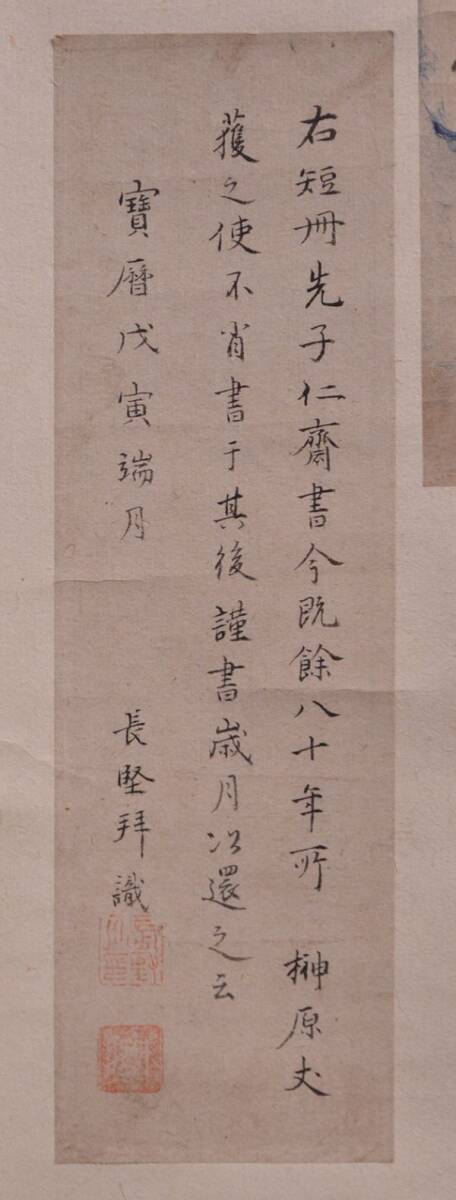 右短冊先子仁齋書今既餘八十年所 榊原丈
獲之使不肖書于其後謹書歳月以還之云
寶曆戊寅端月
長堅拜識